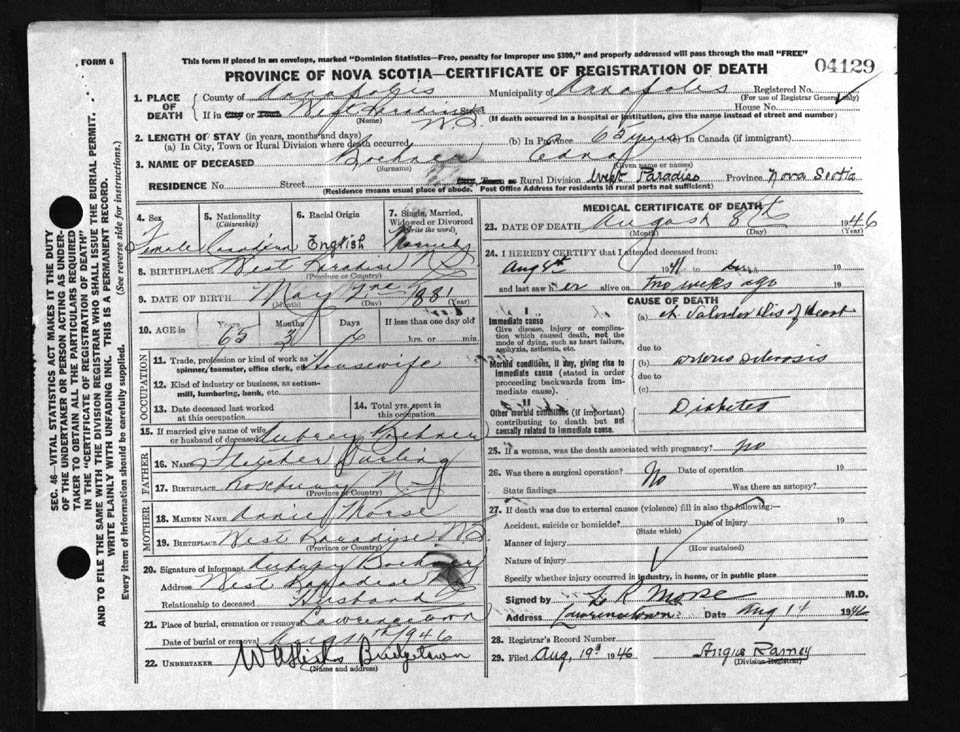 FORM 6
This form if placed in an envelope, marked "Dominion Statistics—Free, penalty for improper use $300," and properly addressed will pass through the mail "FREE"
PROVINCE OF NOVA SCOTIA—CERTIFICATE OF REGISTRATION OF DEATH
04129
1. PLACE OF DEATH
County of Annapolis Municipality of Annapolis Registered No.
(For use of Registrar General only)
If in City or Town West Paradise Street House No.
(Name) N.S. (If death occurred in a hospital or institution, give the name instead of street and number)
2. LENGTH OF STAY (in years, months and days)
(a) In City, Town or Rural Division where death occurred (b) In Province 65 years (c) In Canada (if immigrant)
3. NAME OF DECEASED Boehner Edna
(Surname) (Given name or names)
RESIDENCE No. Street City, Town or Rural Division West Paradise Province Nova Scotia
(Residence means usual place of abode. Post Office Address for residents in rural parts not sufficient)
4. Sex
Female
5. Nationality
(Citizenship)
Canadian
6. Racial Origin
English
7. Single, Married, Widowed or Divorced
(Write the word)
Married
8. BIRTHPLACE West Paradise N S
(Province or Country)
9. DATE OF BIRTH May 1881
(Month) (Day) (Year)
10. AGE in
Years Months Days If less than one day old
65 3 6 hrs. or min.
OCCUPATION
11. Trade, profession or kind of work as spinner, teamster, office clerk, etc. Housewife
12. Kind of industry or business, as cotton-mill, lumbering, bank, etc.
13. Date deceased last worked at this occupation
14. Total yrs. spent in this occupation
15. If married give name of wife or husband of deceased Aubrey Boehner
FATHER
16. NAME Fletcher Durling
17. BIRTHPLACE Roxbury N S
(Province or Country)
MOTHER
18. MAIDEN NAME Annie Morse
19. BIRTHPLACE West Paradise N.S
(Province or Country)
20. Signature of informant Aubrey Boehner
Address West Paradise N S
Relationship to deceased Husband
21. Place of burial, cremation or removal Lawrencetown
Date of burial or removal August 11th 1946
22. UNDERTAKER W A Hicks Bridgetown
(Name and address)
MEDICAL CERTIFICATE OF DEATH
23. DATE OF DEATH August 8th 1946
(Month) (Day) (Year)
24. I HEREBY CERTIFY that I attended deceased from
Aug 1941 to 19
and last saw her alive on two weeks ago 19
CAUSE OF DEATH
Immediate cause
Give disease, injury or complication which caused death, not the mode of dying, such as heart failure, asphyxia, asthenia, etc.
(a) Ch. Valvular Dis of Heart
due to
Morbid conditions, if any, giving rise to immediate cause (stated in order proceeding backwards from immediate cause).
(b) arterio sclerosis
due to
(c)
Other morbid conditions (if important) contributing to death but not causally related to immediate cause.
Diabetes
25. If a woman, was the death associated with pregnancy? No
26. Was there a surgical operation? No Date of operation 19
State findings Was there an autopsy?
27. If death was due to external causes (violence) fill in also the following:—
Accident, suicide or homicide? Date of injury 19
(State which)
Manner of injury
(How sustained)
Nature of injury
Specify whether injury occurred in industry, in home, or in public place
Signed by L R Morse M.D.
Address Lawrencetown Date Aug 14 1946
28. Registrar's Record Number
29. Filed Aug, 19th 1946 Angus Ramey
(Division Registrar)
SEC. 46—VITAL STATISTICS ACT MAKES IT THE DUTY
OF THE UNDERTAKER OR PERSON ACTING AS UNDER-
TAKER TO OBTAIN ALL THE PARTICULARS REQUIRED
IN THE "CERTIFICATE OF REGISTRATION OF DEATH"
AND TO FILE THE SAME WITH THE DIVISION REGISTRAR WHO SHALL ISSUE THE BURIAL PERMIT.
WRITE PLAINLY WITH UNFADING INK. THIS IS A PERMANENT RECORD.
Every item of information should be carefully supplied. (See reverse side for instructions.)